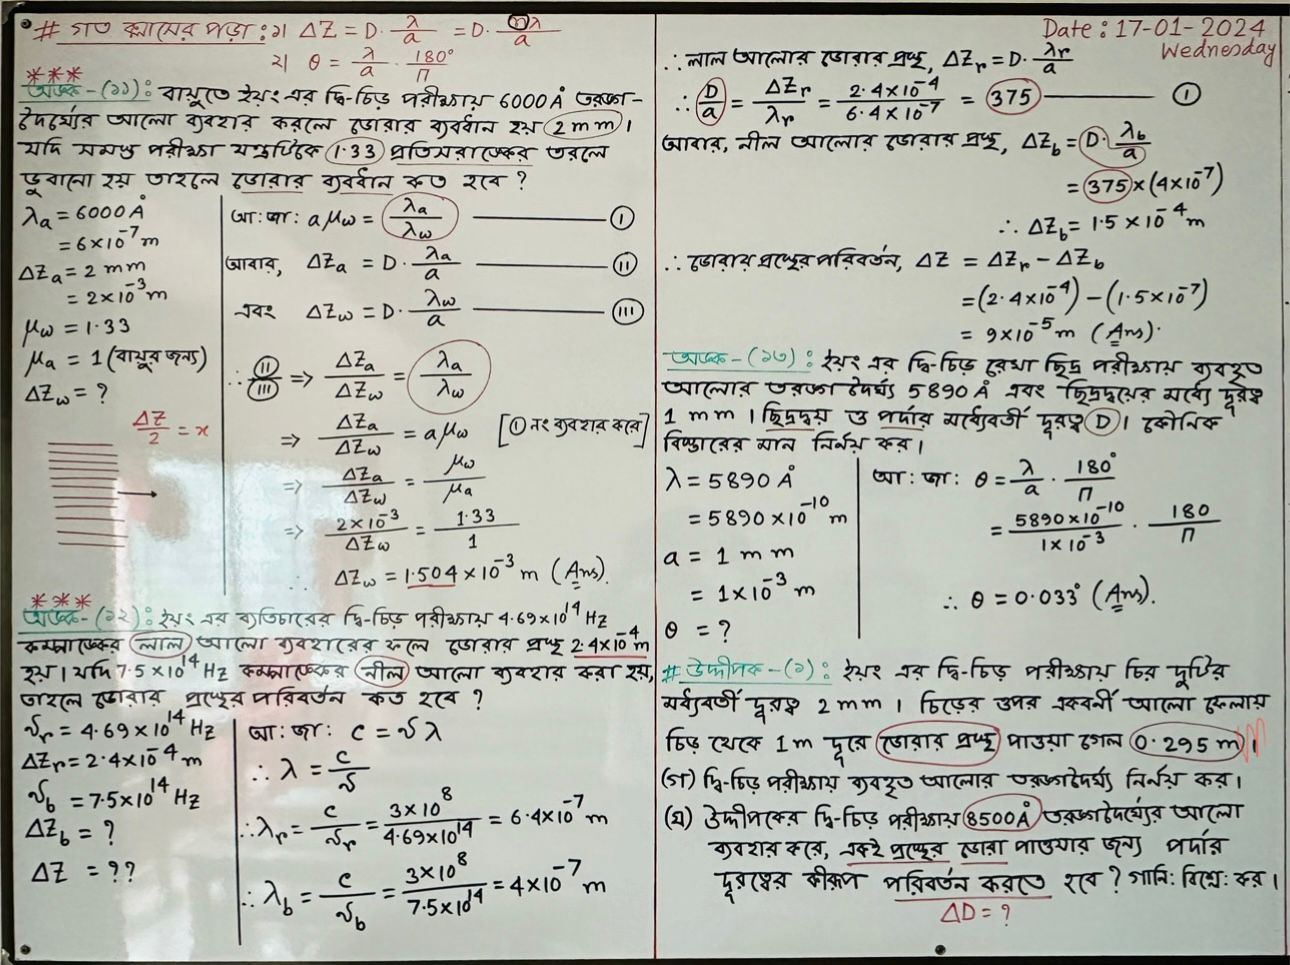 # গত ক্লাসের পড়া: ১। ΔZ = D · λ/a = D · nλ/a
২। θ = λ/a · 180°/π
***
অংক-(১১): বায়ুতে ইয়ং এর দ্বি-চিড় পরীক্ষায় 6000 Å তরঙ্গ-
দৈর্ঘ্যের আলো ব্যবহার করলে ডোরার ব্যবধান হয় 2 mm।
যদি সমস্ত পরীক্ষা যন্ত্রটিকে 1·33 প্রতিসরাঙ্কের তরলে
ডুবানো হয় তাহলে ডোরার ব্যবধান কত হবে?
λa = 6000 Å
= 6×10⁻⁷ m
ΔZa = 2 mm
= 2×10⁻³ m
μw = 1·33
μa = 1 (বায়ুর জন্য)
ΔZw = ?
ΔZ/2 = x
আ: জা: aμw = λa/λw ——— (I)
আবার, ΔZa = D · λa/a ——— (II)
এবং ΔZw = D · λw/a ——— (III)
∴ (II)/(III) => ΔZa/ΔZw = λa/λw
=> ΔZa/ΔZw = aμw [① নং ব্যবহার করে]
=> ΔZa/ΔZw = μw/μa
=> 2×10⁻³/ΔZw = 1·33/1
∴ ΔZw = 1·504 × 10⁻³ m (Ans).
***
অংক-(১২): ইয়ং এর ব্যতিচারের দ্বি-চিড় পরীক্ষায় 4.69×10¹⁴ Hz
কম্পাঙ্কের লাল আলো ব্যবহারের ফলে ডোরার প্রস্থ 2·4×10⁻⁴ m
হয়। যদি 7·5×10¹⁴ Hz কম্পাঙ্কের নীল আলো ব্যবহার করা হয়,
তাহলে ডোরার প্রস্থের পরিবর্তন কত হবে?
νr = 4·69×10¹⁴ Hz
ΔZr = 2·4×10⁻⁴ m
νb = 7·5×10¹⁴ Hz
ΔZb = ?
ΔZ = ??
আ: জা: c = νλ
∴ λ = c/ν
∴ λr = c/νr = 3×10⁸/4·69×10¹⁴ = 6·4×10⁻⁷ m
∴ λb = c/νb = 3×10⁸/7·5×10¹⁴ = 4×10⁻⁷ m
Date: 17-01-2024
Wednesday
∴ লাল আলোর ডোরার প্রস্থ, ΔZr = D · λr/a
∴ D/a = ΔZr/λr = 2·4×10⁻⁴/6·4×10⁻⁷ = 375 ——— (I)
আবার, নীল আলোর ডোরার প্রস্থ, ΔZb = D · λb/a
= 375 × (4×10⁻⁷)
∴ ΔZb = 1·5×10⁻⁴ m
∴ ডোরার প্রস্থের পরিবর্তন, ΔZ = ΔZr − ΔZb
= (2·4×10⁻⁴) − (1·5×10⁻⁷)
= 9×10⁻⁵ m (Ans).
অংক-(১৩): ইয়ং এর দ্বি-চিড় রেখা ছিদ্র পরীক্ষায় ব্যবহৃত
আলোর তরঙ্গ দৈর্ঘ্য 5890 Å এবং ছিদ্রদ্বয়ের মধ্যে দূরত্ব
1 mm। ছিদ্রদ্বয় ও পর্দার মধ্যবর্তী দূরত্ব D। কৌনিক
বিস্তারের মান নির্নয় কর।
λ = 5890 Å
= 5890×10⁻¹⁰ m
a = 1 mm
= 1×10⁻³ m
θ = ?
আ: জা: θ = λ/a · 180°/π
= 5890×10⁻¹⁰/1×10⁻³ · 180/π
∴ θ = 0·033° (Ans).
# উদ্দীপক-(১): ইয়ং এর দ্বি-চিড় পরীক্ষায় চির দুটির
মধ্যবর্তী দূরত্ব 2 mm। চিড়ের উপর একবর্নী আলো ফেলায়
চিড় থেকে 1m দূরে ডোরার প্রস্থ পাওয়া গেল 0·295 m।
(গ) দ্বি-চিড় পরীক্ষায় ব্যবহৃত আলোর তরঙ্গদৈর্ঘ্য নির্নয় কর।
(ঘ) উদ্দীপকের দ্বি-চিড় পরীক্ষায় 8500Å তরঙ্গদৈর্ঘ্যের আলো
ব্যবহার করে, একই প্রস্থের ডোরা পাওয়ার জন্য পর্দার
দূরত্বের কীরূপ পরিবর্তন করতে হবে? গানি: বিশ্লে: কর।
ΔD = ?